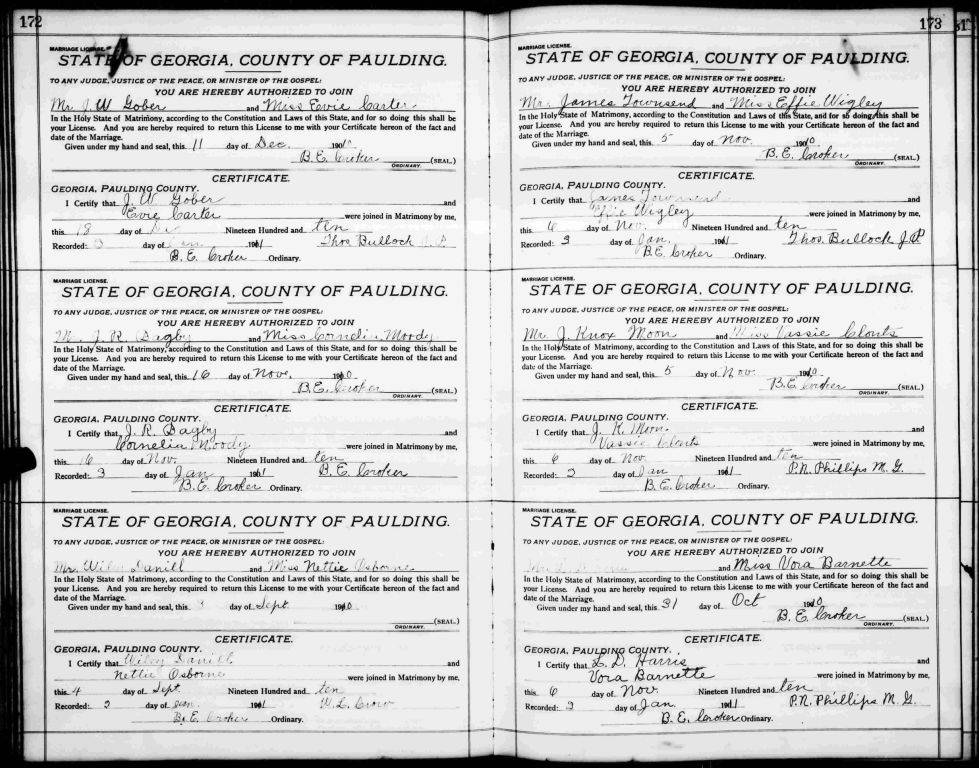 172
MARRIAGE LICENSE.
STATE OF GEORGIA, COUNTY OF PAULDING.
TO ANY JUDGE, JUSTICE OF THE PEACE, OR MINISTER OF THE GOSPEL:
YOU ARE HEREBY AUTHORIZED TO JOIN
Mr J. W Gober and Miss Evie Carter
In the Holy State of Matrimony, according to the Constitution and Laws of this State, and for so doing this shall be
your License. And you are hereby required to return this License to me with your Certificate hereof of the fact and
date of the Marriage.
Given under my hand and seal, this 11 day of Dec. 1910.
B. E. Croker (SEAL.)
ORDINARY.
CERTIFICATE.
GEORGIA, PAULDING COUNTY.
I Certify that J. W Gober and
Evie Carter were joined in Matrimony by me,
this 18 day of Nineteen Hundred and ten
Recorded: 3 day of 1911 Thos. Bullock J. P.
B. E. Croker Ordinary.
MARRIAGE LICENSE.
STATE OF GEORGIA, COUNTY OF PAULDING.
TO ANY JUDGE, JUSTICE OF THE PEACE, OR MINISTER OF THE GOSPEL:
YOU ARE HEREBY AUTHORIZED TO JOIN
M. J. R. Bagby and Miss Cornelia Moody
In the Holy State of Matrimony, according to the Constitution and Laws of this State, and for so doing this shall be
your License. And you are hereby required to return this License to me with your Certificate hereof of the fact and
date of the Marriage.
Given under my hand and seal, this 16 day of Nov. 1910.
B. E. Croker (SEAL)
ORDINARY.
CERTIFICATE.
GEORGIA, PAULDING COUNTY.
I Certify that J. R. Bagby and
Cornelia Moody were joined in Matrimony by me,
this 16 day of Nov. Nineteen Hundred and ten
Recorded: 3 day of Jan 1911 B. E. Croker
B. E. Croker Ordinary.
MARRIAGE LICENSE.
STATE OF GEORGIA, COUNTY OF PAULDING.
TO ANY JUDGE, JUSTICE OF THE PEACE, OR MINISTER OF THE GOSPEL:
YOU ARE HEREBY AUTHORIZED TO JOIN
Mr. Wiley Danill and Miss Nettie Osborne
In the Holy State of Matrimony, according to the Constitution and Laws of this State, and for so doing this shall be
your License. And you are hereby required to return this License to me with your Certificate hereof of the fact and
date of the Marriage.
Given under my hand and seal, this day of Sept 1910.
(SEAL.)
ORDINARY.
CERTIFICATE.
GEORGIA, PAULDING COUNTY.
I Certify that Wiley Danill and
Nettie Osborne were joined in Matrimony by me,
this 4 day of Sept. Nineteen Hundred and ten
Recorded: 2 day of Jan. 1911 W. L. Crow
B. E. Croker Ordinary.
173
MARRIAGE LICENSE.
STATE OF GEORGIA, COUNTY OF PAULDING.
TO ANY JUDGE, JUSTICE OF THE PEACE, OR MINISTER OF THE GOSPEL:
YOU ARE HEREBY AUTHORIZED TO JOIN
Mr. James Townsend and Miss Effie Wigley
In the Holy State of Matrimony, according to the Constitution and Laws of this State, and for so doing this shall be
your License. And you are hereby required to return this License to me with your Certificate hereof of the fact and
date of the Marriage.
Given under my hand and seal, this 5 day of Nov. 1910
B. E. Croker (SEAL.)
ORDINARY.
CERTIFICATE.
GEORGIA, PAULDING COUNTY.
I Certify that James Townsend and
Effie Wigley were joined in Matrimony by me,
this 6 day of Nov. Nineteen Hundred and ten
Recorded: 3 day of Jan. 1911 Thos. Bullock J. P
B. E. Croker Ordinary.
MARRIAGE LICENSE.
STATE OF GEORGIA, COUNTY OF PAULDING.
TO ANY JUDGE, JUSTICE OF THE PEACE, OR MINISTER OF THE GOSPEL:
YOU ARE HEREBY AUTHORIZED TO JOIN
Mr. J. Knox Moon and Miss Vassie Clonts
In the Holy State of Matrimony, according to the Constitution and Laws of this State, and for so doing this shall be
your License. And you are hereby required to return this License to me with your Certificate hereof of the fact and
date of the Marriage.
Given under my hand and seal, this 5 day of Nov. 1910.
B. E. Croker (SEAL)
ORDINARY.
CERTIFICATE.
GEORGIA, PAULDING COUNTY.
I Certify that J. K. Moon. and
Vassie Clonts were joined in Matrimony by me,
this 6 day of Nov. Nineteen Hundred and ten
Recorded: 2 day of Jan 1911 P. N. Phillips M. G.
B. E. Croker Ordinary.
MARRIAGE LICENSE.
STATE OF GEORGIA, COUNTY OF PAULDING.
TO ANY JUDGE, JUSTICE OF THE PEACE, OR MINISTER OF THE GOSPEL:
YOU ARE HEREBY AUTHORIZED TO JOIN
and Miss Vora Barnette
In the Holy State of Matrimony, according to the Constitution and Laws of this State, and for so doing this shall be
your License. And you are hereby required to return this License to me with your Certificate hereof of the fact and
date of the Marriage.
Given under my hand and seal, this 31 day of Oct 1910
B. E. Croker (SEAL.)
ORDINARY.
CERTIFICATE.
GEORGIA, PAULDING COUNTY.
I Certify that L. D. Harris and
Vora Barnette were joined in Matrimony by me,
this 6 day of Nov. Nineteen Hundred and ten
Recorded: 2 day of Jan. 1911 P. N. Phillips M. G.
B. E. Croker Ordinary.